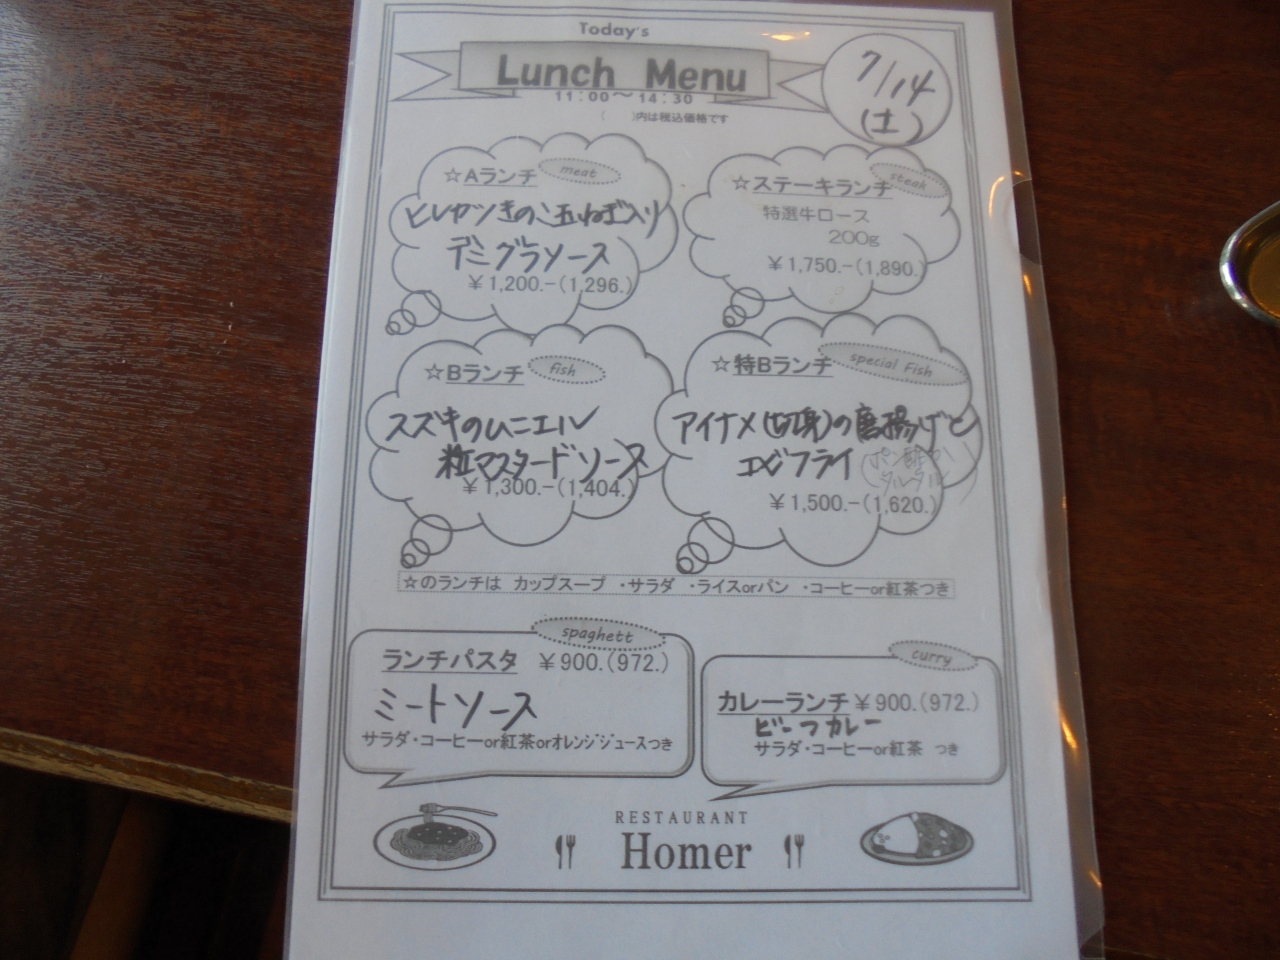 Today's
Lunch Menu
11:00～14:30
(　　)内は税込価格です
7/14
(土)
☆Aランチ meat
ヒレカツきのこ玉ねぎ入り
デミグラソース
￥1,200.-(1,296.)
☆ステーキランチ steak
特選牛ロース
200g
￥1,750.-(1,890.)
☆Bランチ fish
スズキのムニエル
粒マスタードソース
￥1,300.-(1,404.)
☆特Bランチ special Fish
アイナメ(切身)の唐揚げと
エビフライ
タルタル
￥1,500.-(1,620.)
☆のランチは カップスープ ・サラダ ・ライスorパン ・コーヒーor紅茶つき
spaghett
ランチパスタ ￥900.(972.)
ミートソース
サラダ・コーヒーor紅茶orオレンジジュースつき
curry
カレーランチ￥900.(972.)
ビーフカレー
サラダ・コーヒーor紅茶 つき
RESTAURANT
Homer